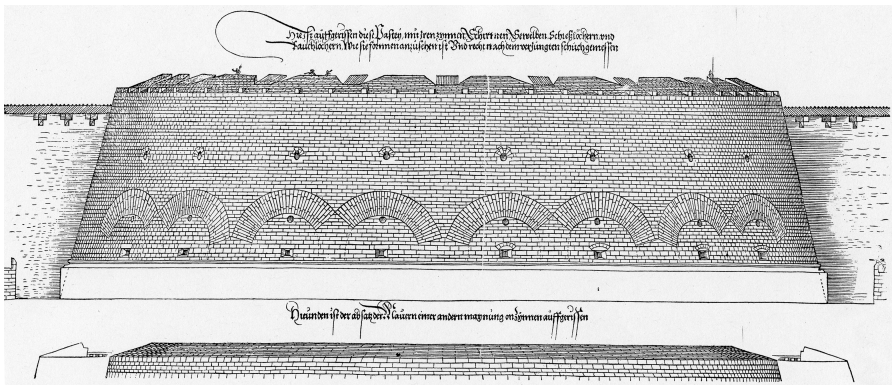 Hie ist auffgerissen diese Pastey, mit iren zynnen Gehirt neu Gewelben Schießlochern und
Rauchlochern Wie sie fornnen anzusehen ist Und recht nach dem verjungten schuch gemessen
Hieunden ist der absatz der Mauern einer andern maynung on zynnen auffgerissen